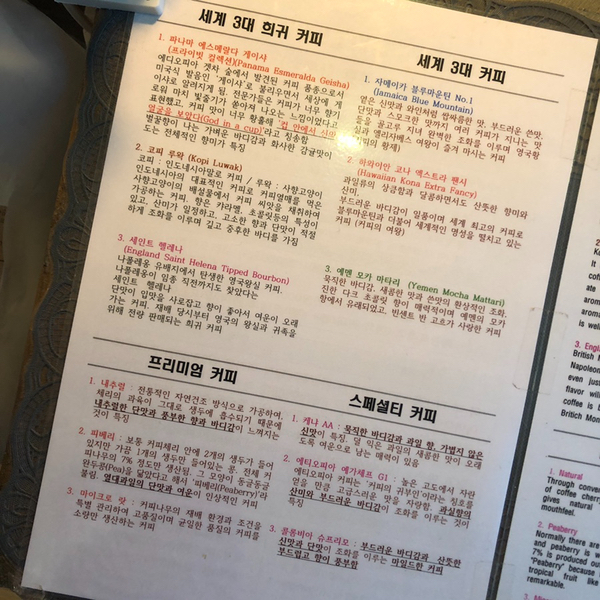 세계 3대 희귀 커피
1. 파나마 에스메랄다 게이샤
(프라이빗 컬렉션)(Panama Esmeralda Geisha)
에디오피아 겟차 숲에서 발견된 커피 품종으로서
미국식 발음인 '게이샤'로 불리우면서 세상에 게
이샤로 알려지게 됨. 전문가들은 커피가 너무 향기
로워 마치 빛줄기가 쏟아져 나오는 느낌이었다고
표현했고, 커피 맛이 너무 황홀해 '컵 안에서 신의
얼굴을 보았다(God in a cup)'라고 칭송함
벌꿀향이 나는 가벼운 바디감과 화사한 감귤맛이
도는 전체적인 향미가 특징
2. 코피 루왁 (Kopi Luwak)
코피 : 인도네시아말로 커피 / 루왁 : 사향고양이
인도네시아의 대표적인 커피로 커피열매를 먹은
사향고양이의 배설물에서 커피 씨앗을 채취하여
가공하는 커피. 향은 캬라멜, 초콜릿등의 특성이
있고, 신미가 일정하고, 고소한 향과 단맛이 적절
하게 조화를 이루며 깊고 중후한 바디를 가짐
3. 세인트 헬레나
(England Saint Helena Tipped Bourbon)
나폴레옹 유배지에서 탄생한 영국왕실 커피.
나폴레옹이 임종 직전까지도 찾았다는
세인트 헬레나
단맛이 입맛을 사로잡고 향이 좋아서 여운이 오래
가는 커피. 재배 당시부터 영국의 왕실과 귀족을
위해 전량 판매되는 희귀 커피
세계 3대 커피
1. 자메이카 블루마운틴 No.1
(Jamaica Blue Mountain)
옅은 신맛과 와인처럼 쌉싸름한 맛, 부드러운 쓴맛,
단맛과 스모크한 맛까지 여러 커피가 지니는 맛
들을 골고루 지녀 완벽한 조화를 이루며 영국왕
실과 엘리자베스 여왕이 즐겨 마시는 커피
(커피의 황제)
2. 하와이안 코나 엑스트라 팬시
(Hawaiian Kona Extra Fancy)
과일류의 상큼함과 달콤하면서도 산뜻한 향미와
신미.
부드러운 바디감이 일품이며 세계 최고의 커피로
블루마운틴과 더불어 세계적인 명성을 떨치고 있는
커피 (커피의 여왕)
3. 예멘 모카 마타리 (Yemen Mocha Mattari)
묵직한 바디감, 새콤한 맛과 쓴맛의 환상적인 조화.
진한 다크 초콜릿 향이 매력적이며 예멘의 모카
항에서 유래되었고, 빈센트 반 고흐가 사랑한 커피
프리미엄 커피
1. 내추럴 : 전통적인 자연건조 방식으로 가공하여,
체리의 과육이 그대로 생두에 흡수되기 때문에
내추럴한 단맛과 풍부한 향과 바디감이 느껴지는
것이 특징
2. 피베리 : 보통 커피체리 안에 2개의 생두가 들어
있지만 가끔 1개의 생두만 들어있는 콩. 전체 커
피나무의 7% 정도만 생산됨. 그 모양이 동글동글
완두콩(Pea)을 닮았다고 해서 '피베리(Peaberry)'라
불림. 열대과일의 단맛과 여운이 인상적인 커피
3. 마이크로 랏 : 커피나무의 재배 환경과 조건을
특별 관리하여 고품질이며 균일한 품질의 커피를
소량만 생산하는 커피
스페셜티 커피
1. 케냐 AA : 묵직한 바디감과 과일 향, 가볍지 않은
신맛이 특징. 덜 익은 과일의 새콤한 맛이 오래
도록 여운으로 남는 매력이 있음
2. 에티오피아 예가체프 G1 : 높은 고도에서 자란
에티오피아 커피는 '커피의 귀부인'이라는 칭호를
얻을 만큼 고급스러운 맛을 자랑함. 과실향의
산미와 부드러운 바디감이 조화를 이루는 것이
특징
3. 콜롬비아 슈프리모 : 부드러운 바디감과 산뜻한
신맛과 단맛이 조화를 이루는 마일드한 커피
부드럽고 향이 풍부함
3. Engla
British
Napoleon
even just
flavor will
coffee is t
Britich Mon
1. Natural
Through conve
of coffee cherry
gives natural
mouthfeel.
2. Peaberry
Normally there are
and peaberry is w
7% is produced out
"Peaberry" because
tropical fruit like
remarkable.